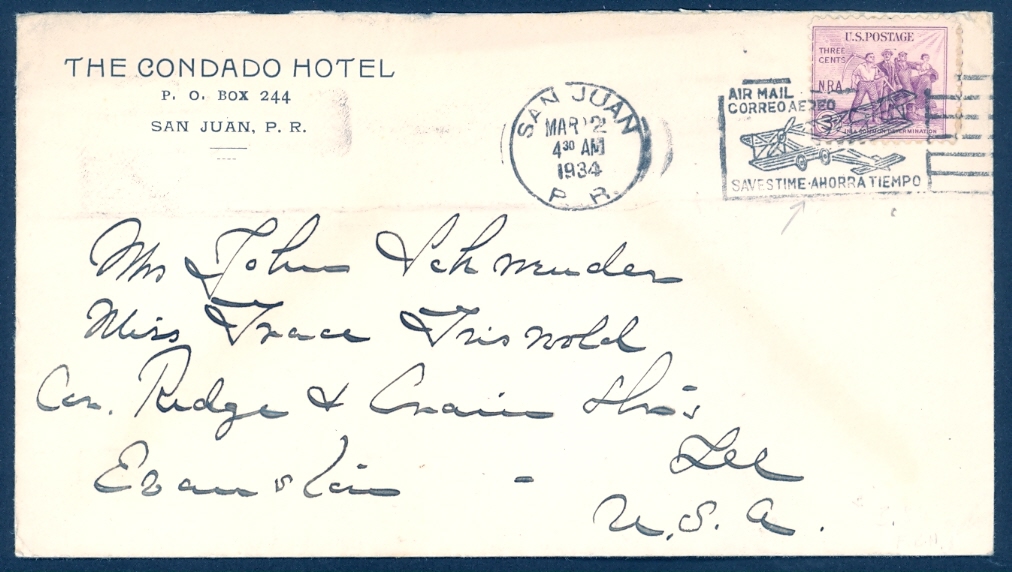 THE CONDADO HOTEL
P. O. BOX 244
SAN JUAN, P. R.
SAN JUAN
MAR 2
4 30 AM
1934
P. R.
AIR MAIL
CORREO AEREO
SAVES TIME·AHORRA TIEMPO
U.S. POSTAGE
THREE
CENTS
NRA
3
IN A COMMON DETERMINATION
Mrs John
Miss Grace Griswold
Cor. Ridge & Crain
Evanston - Ill
U.S.A.